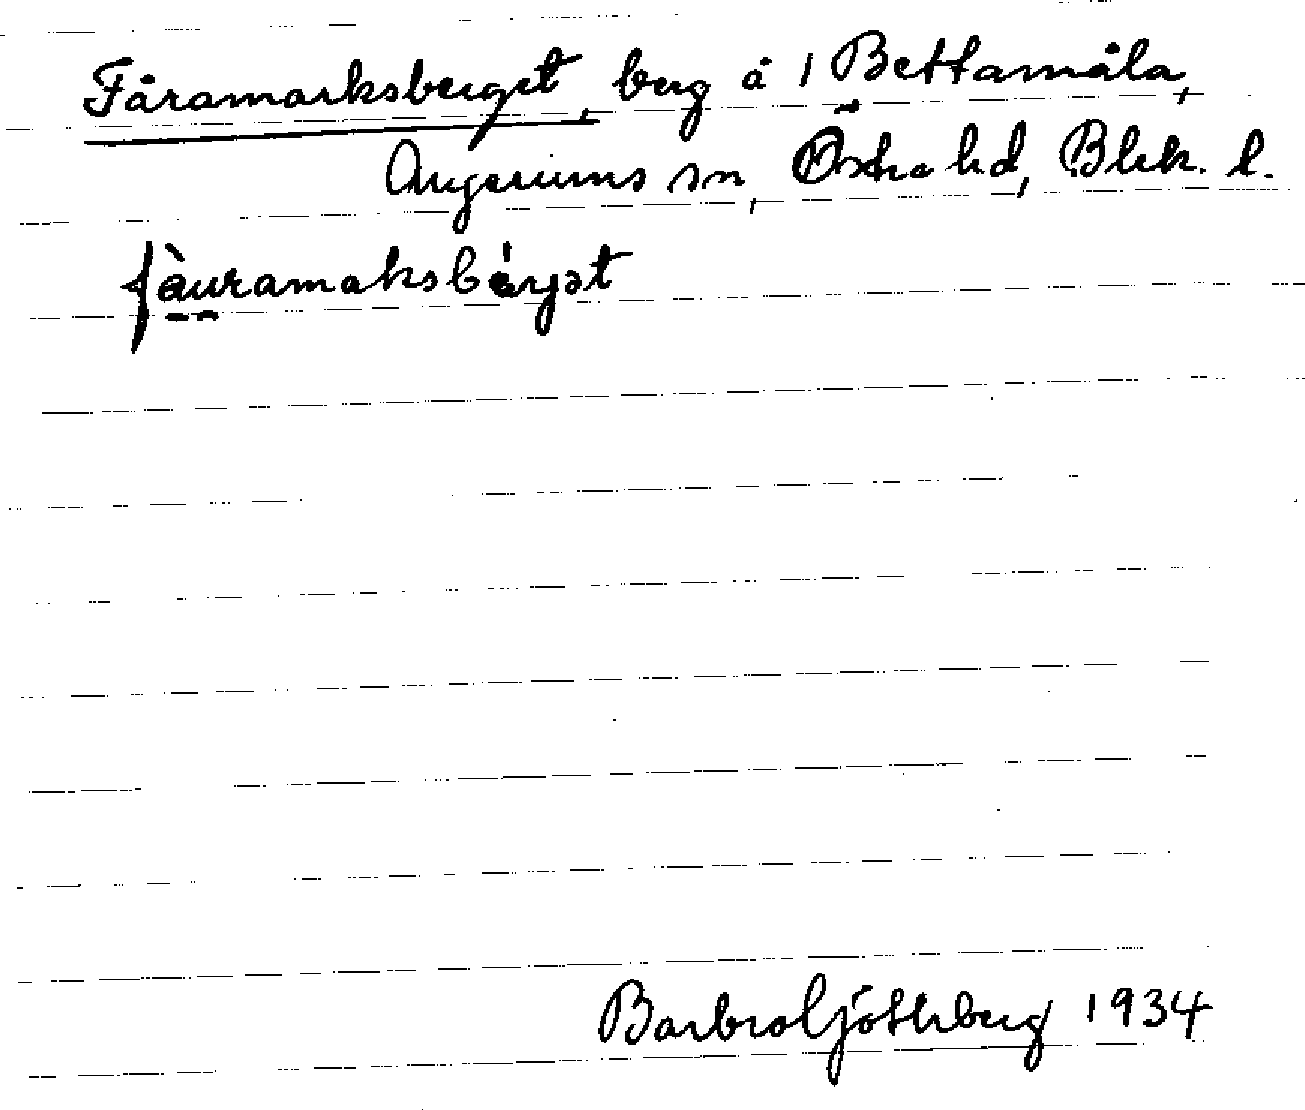 Fåramarksberget, berg å 1 Bettamåla,
Augerums sn, Östra hd, Blek. l.
fàuramaksbárjət
Barbro Götherberg 1934